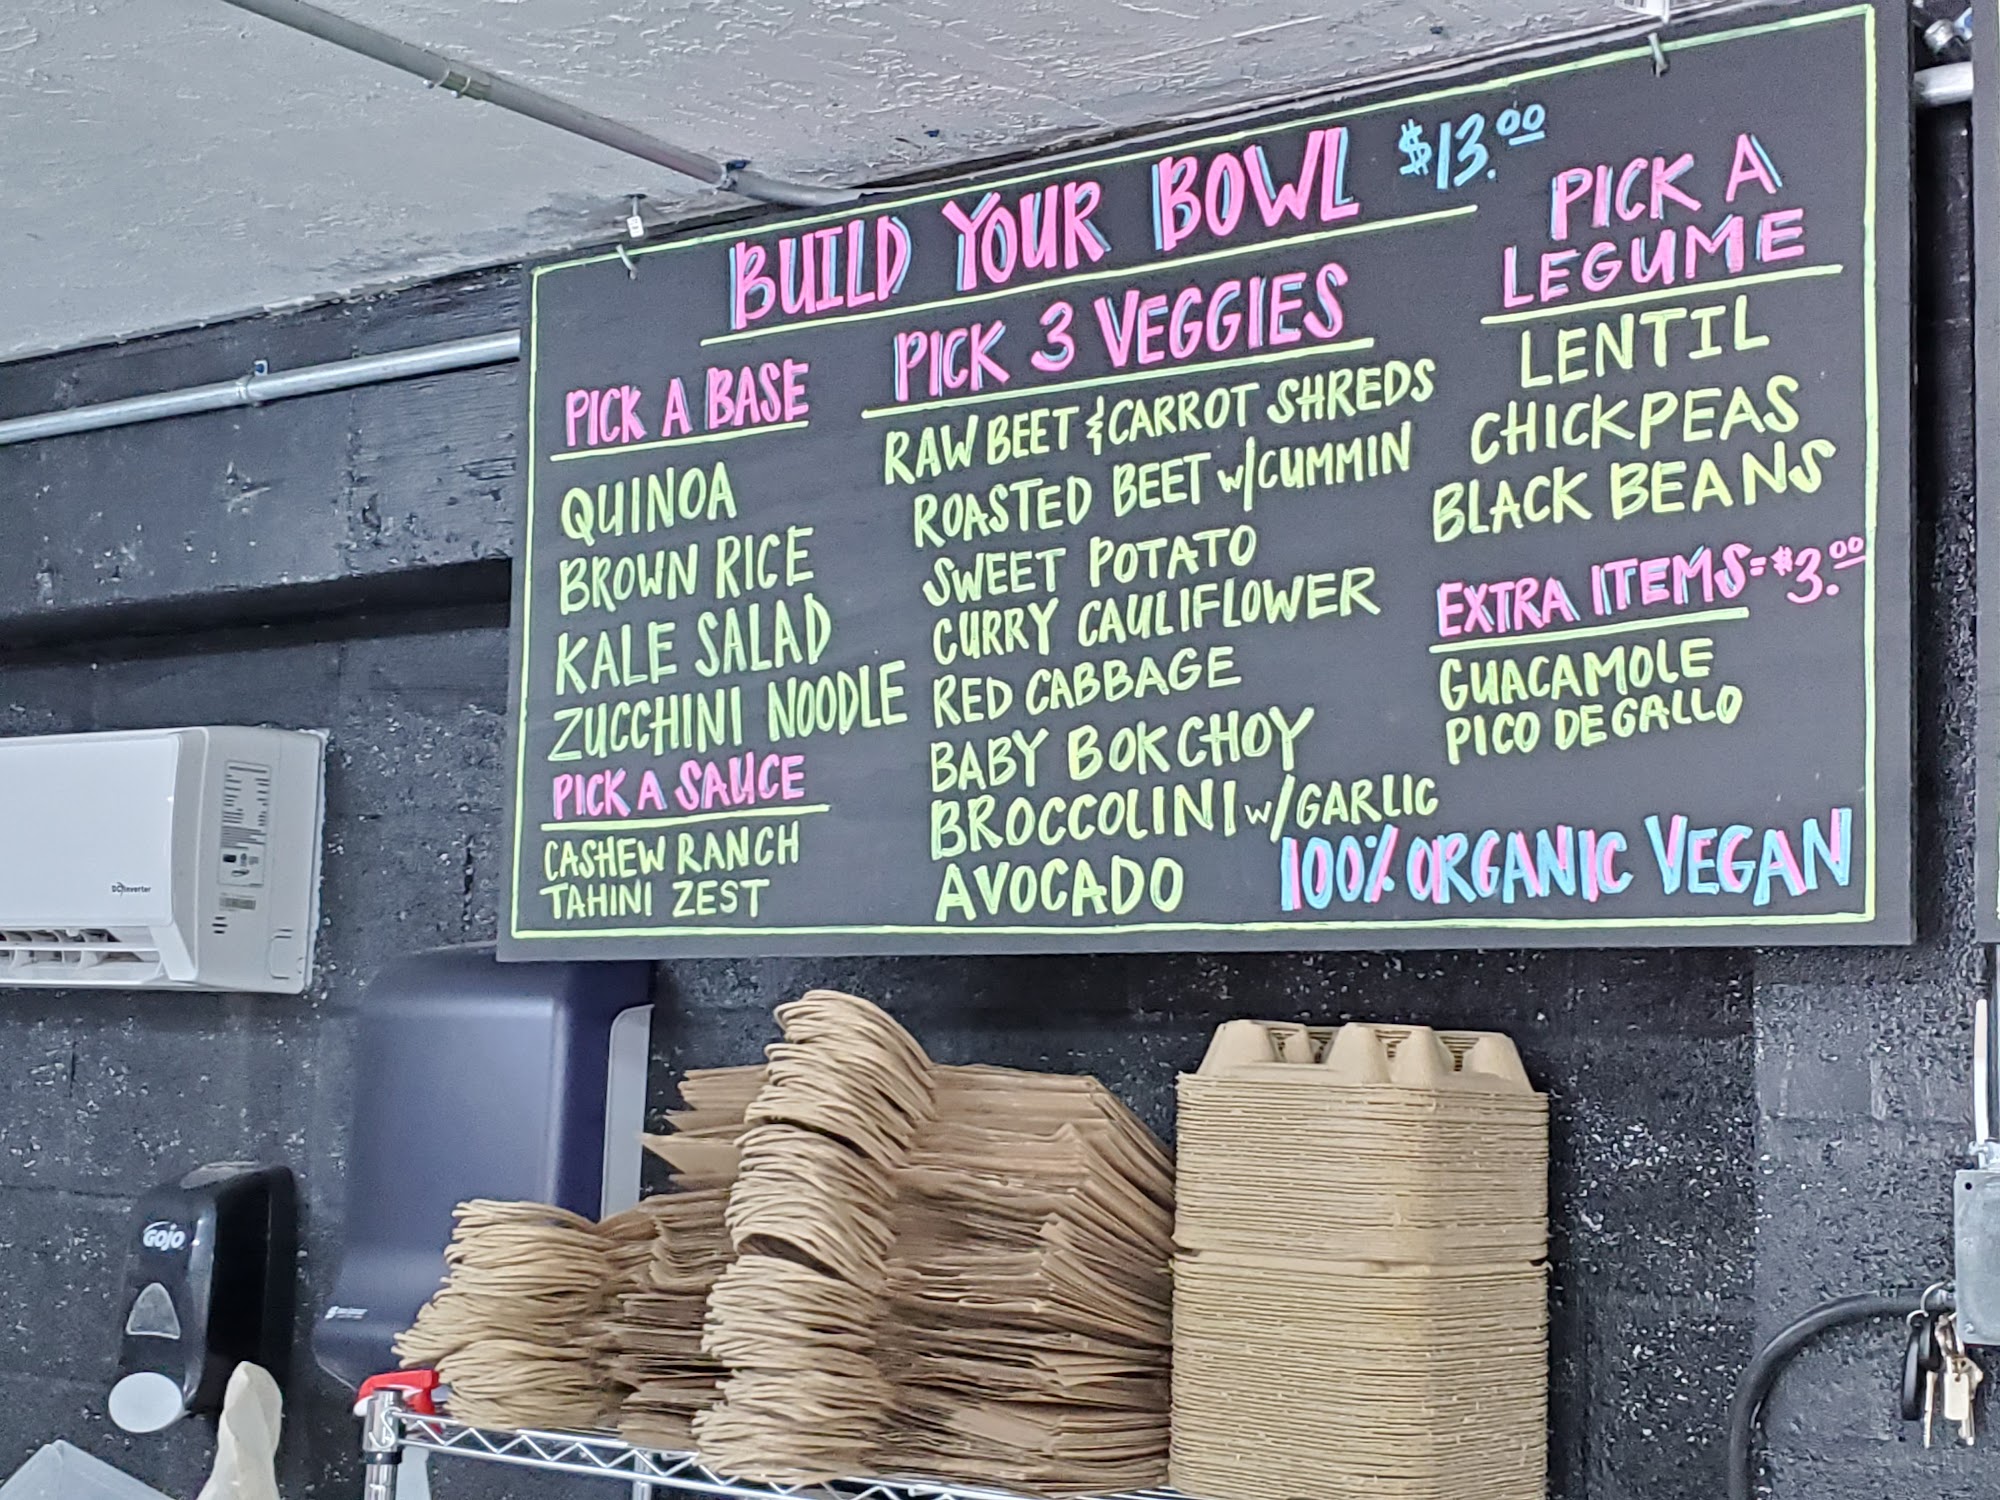 BUILD YOUR BOWL $13.00
PICK A BASE
QUINOA
BROWN RICE
KALE SALAD
ZUCCHINI NOODLE
PICK A SAUCE
CASHEW RANCH
TAHINI ZEST
PICK 3 VEGGIES
RAW BEET & CARROT SHREDS
ROASTED BEET w/CUMMIN
SWEET POTATO
CURRY CAULIFLOWER
RED CABBAGE
BABY BOK CHOY
BROCCOLINI w/GARLIC
AVOCADO
PICK A
LEGUME
LENTIL
CHICKPEAS
BLACK BEANS
EXTRA ITEMS=$3.00
GUACAMOLE
PICO DE GALLO
100% ORGANIC VEGAN
DC Inverter
GOJO